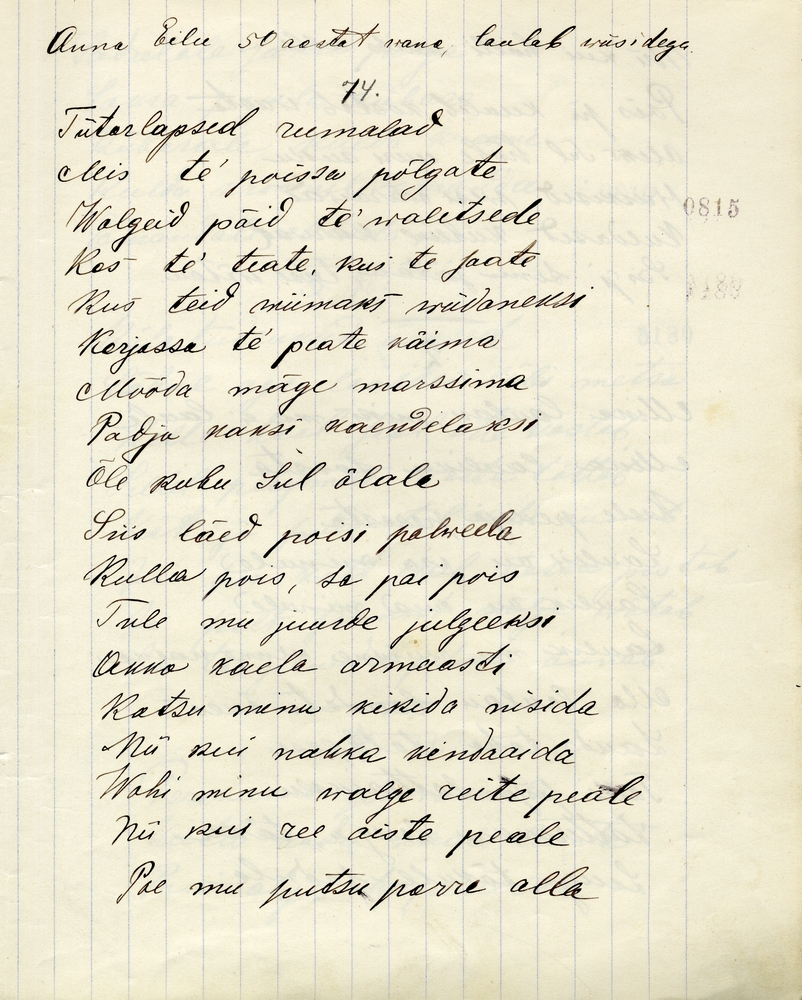 Anna Eilu 50 aastat wana, laulab wiisidega.
74.
Tütarlapsed rumalad
Mis te' poissa põlgate
Walgeid päid te' walitsede
Kas te' teate, kus te saate
Kus teid wiimaks wiidaneksi
Karjassa te' peate käima
Mööda mäge marssima
Padja kaksi kaendelaksi
Õle kubu Sul õlale
Siis läed poisi palweela
Kulla pois, sa pai pois
Tule mu juurde julgeeksi
Akka kaela armaasti
Katsu minu kikida nisida
Nii kui nahka kindaaida
Wahi minu walge reite peale
Nii kui ree aiste peale
Poe mu putsu parra alla
0815